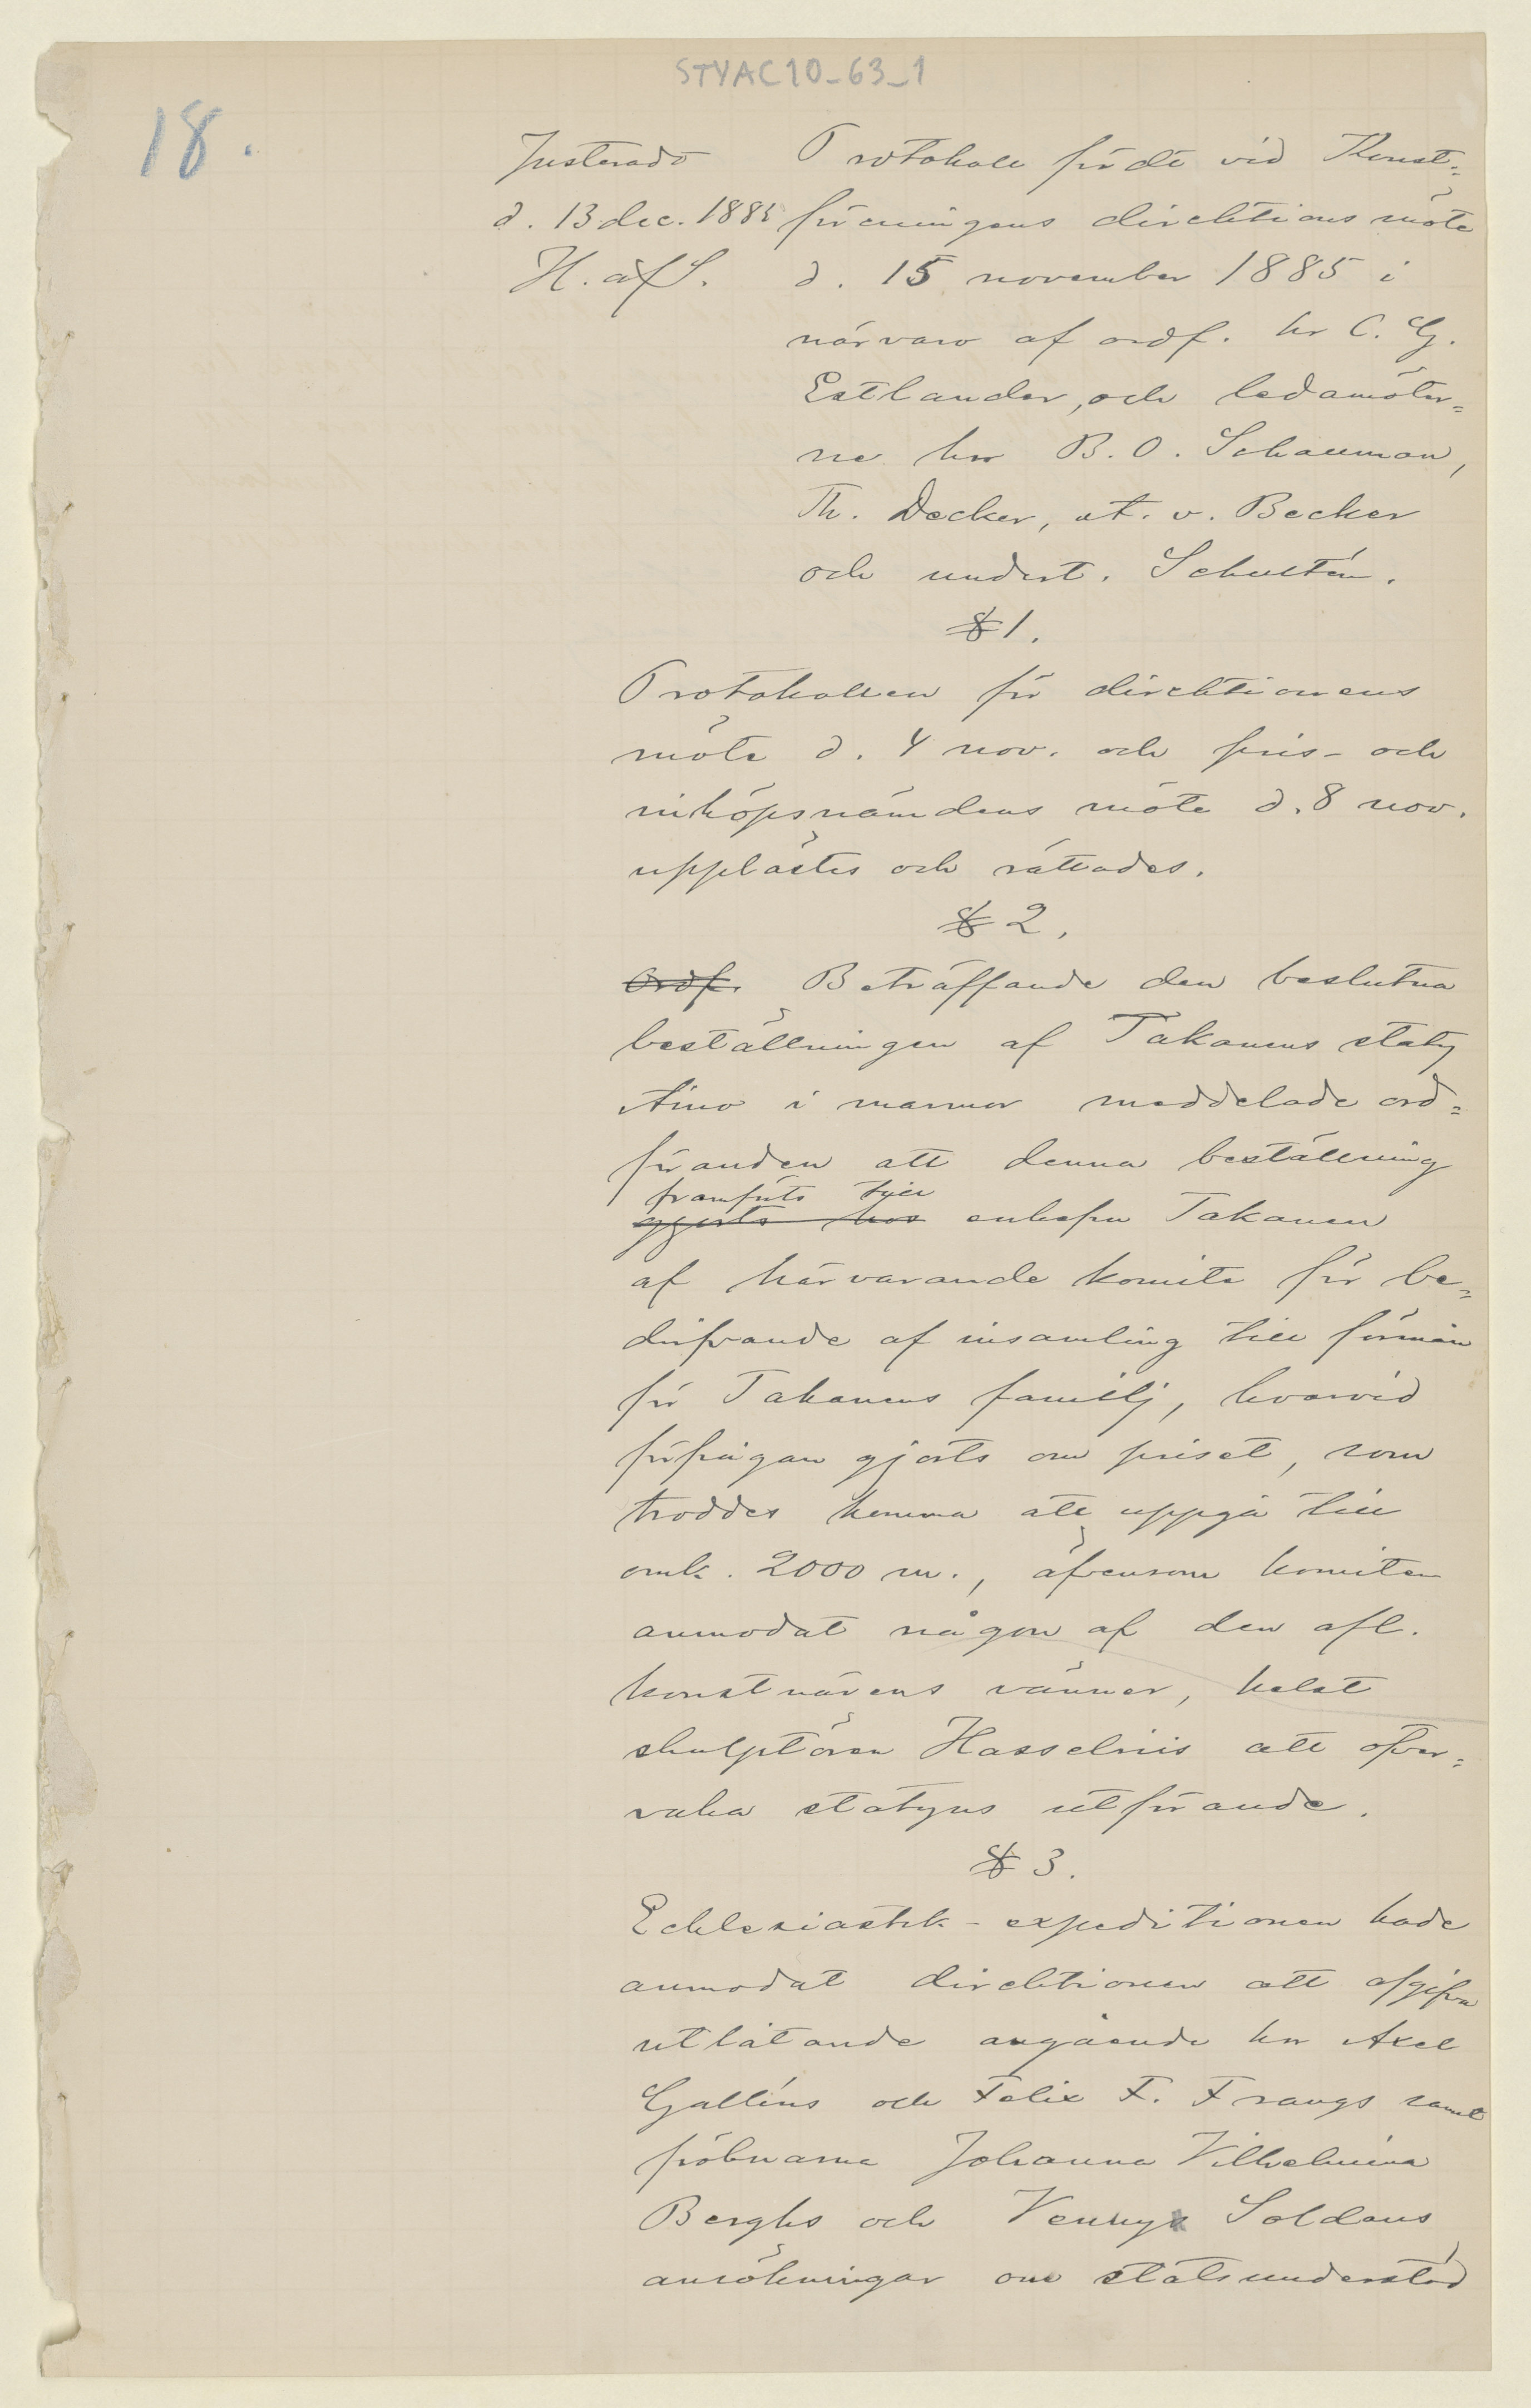 STYAC10_63_1
18.
Justerado
d. 13 dec. 1885
H. af S.
Protokoll fördt vid Konst=
föreningens direktions möte
d. 15 november 1885 i
närvaro af ordf. hr C. G.
Estlander, och ledamöter=
ne hrr B. O. Schauman,
Th. Decker, A. v. Becker
och undert. Schultén.
§ 1.
Protokollen för direktionens
möte d. 4 nov. och pris- och
inköpsnämdens möte d. 8 nov.
upplästes och rättades.
§ 2.
Ordf. Beträffande den beslutna
beställningen af Takanens staty
Aino i marmor meddelade ord=
föranden att denna beställning
framförts till
gjorts hos enkefru Takanen
af härvarande komite för be=
drifvande af insamling till förmån
för Takanens familj, hvarvid
förfrågan gjorts om priset, som
troddes komma att uppgå till
omk. 2000 m., äfvensom komiten
anmodat någon af den afl.
konstnärens vänner, helst
skulptören Hasselriis att öfver=
vaka statyns utförande.
§ 3.
Ecklesiastik-expeditionen hade
anmodat direktionen att afgifva
utlåtande angående hrr Axel
Galléns och Felix F. Frangs samt
fröknarna Johanna Vilhelmina
Berghs och Vennys Soldans
ansökningar om statsunderstöd